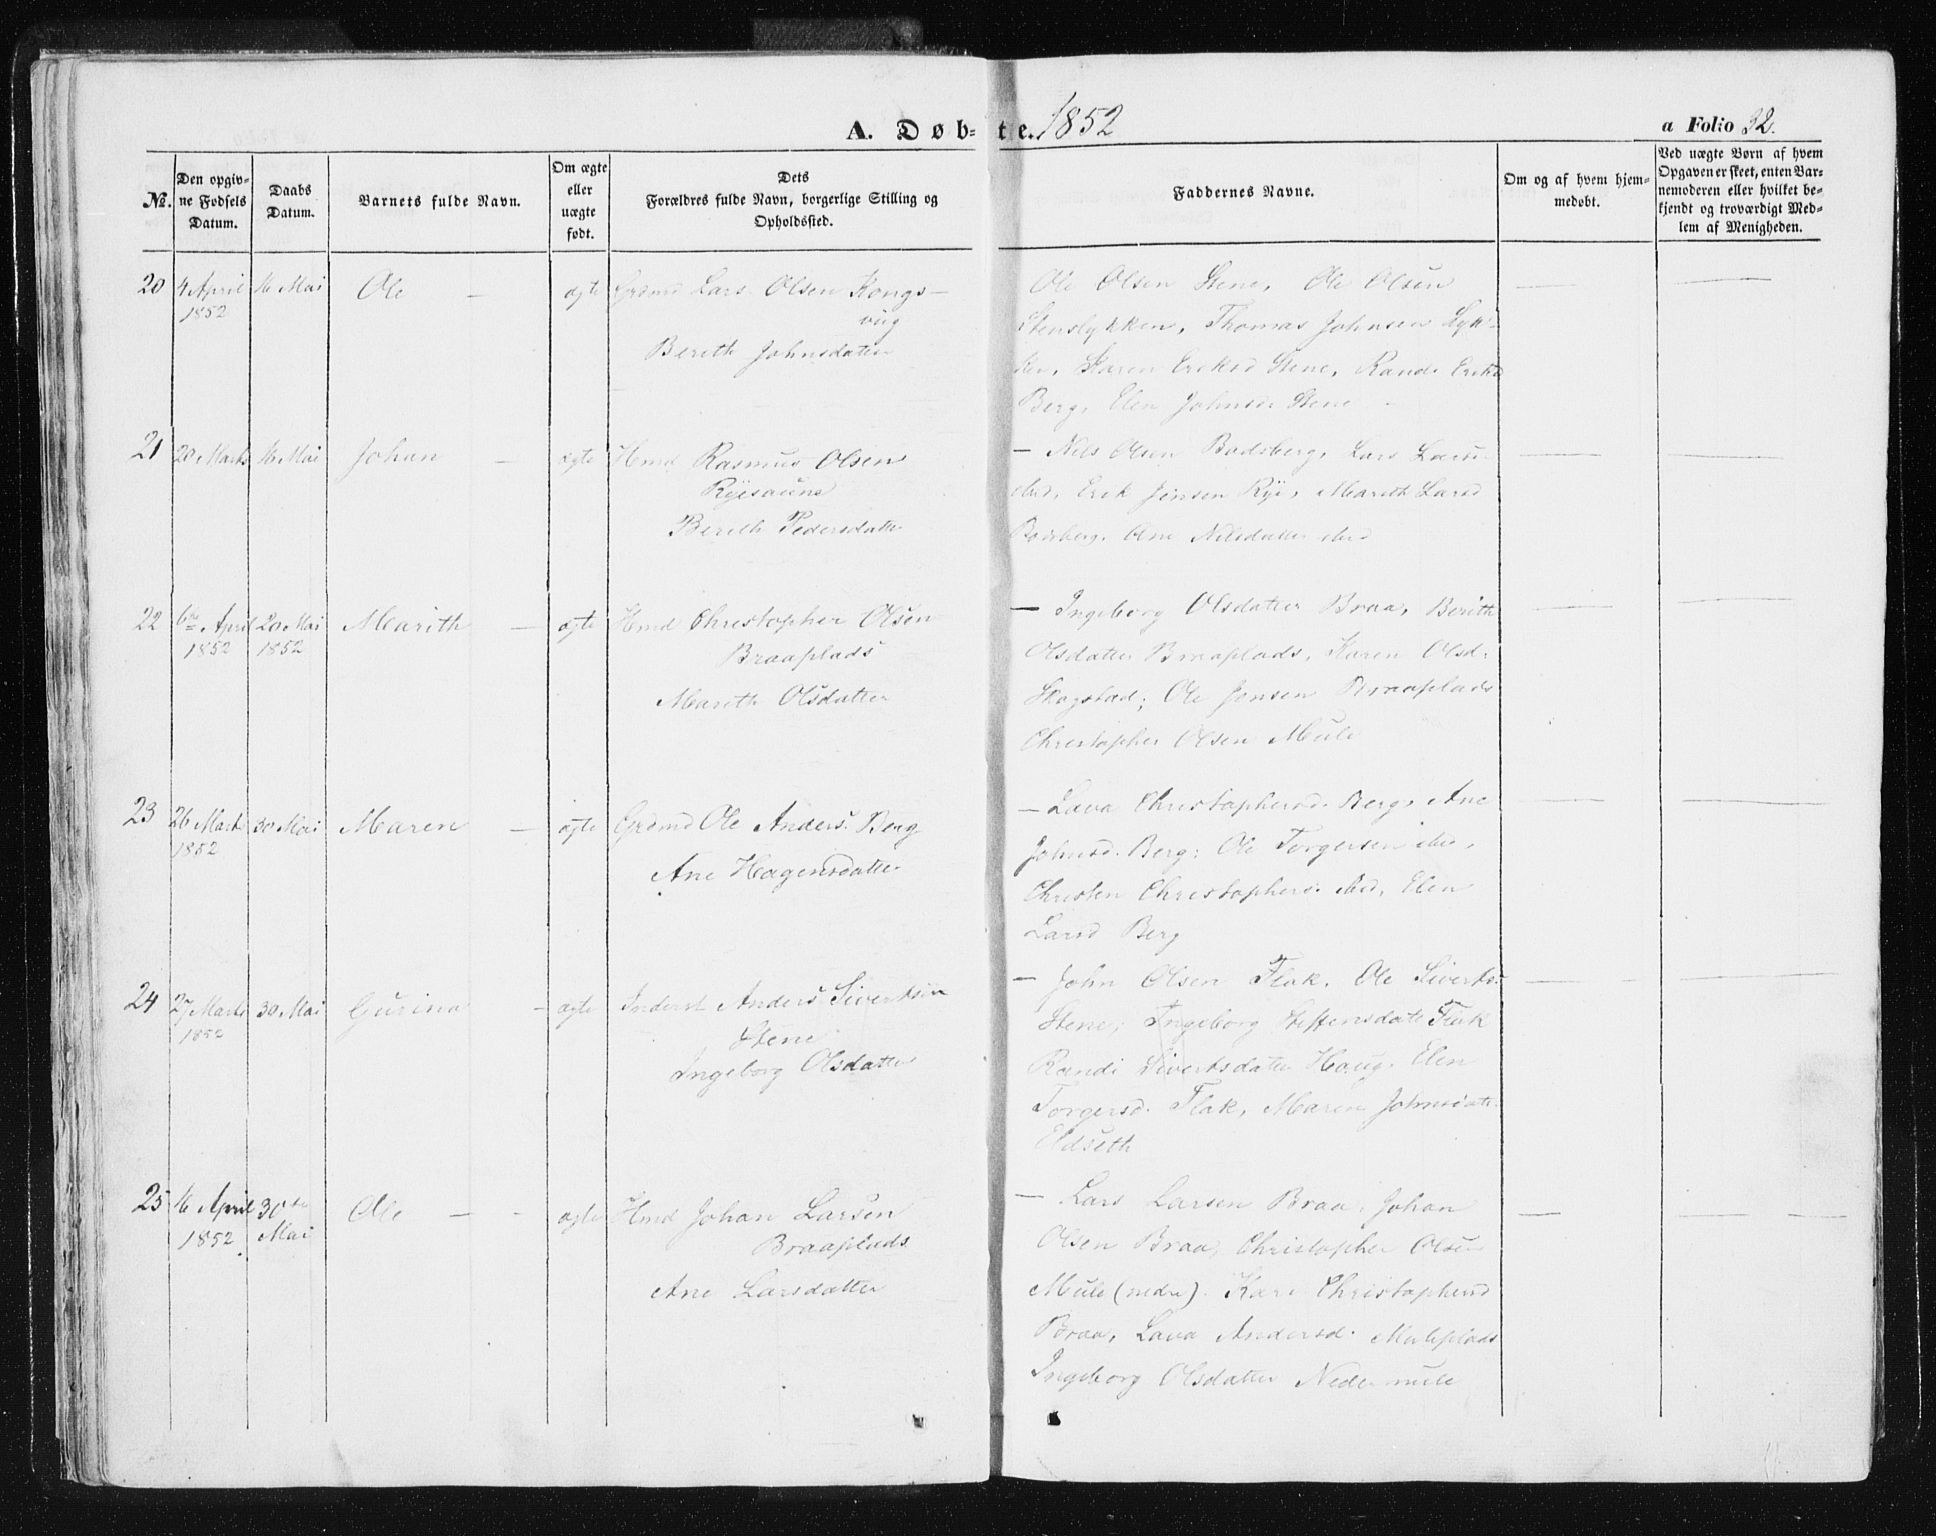 A. Døb- te. 1852
a Folio 32.
№.
Den opgiv-
ne Fødsels
Datum.
Daabs
Datum.
Barnets fulde Navn.
Om ægte
eller
uægte
født.
Dets
Forældres fulde Navn, borgerlige Stilling og
Opholdssted.
Faddernes Navne.
Om og af hvem hjem-
medøbt.
Ved uægte Børn af hvem
Opgaven er skeet, enten Bar-
nemoderen eller hvilket be-
kjendt og troværdigt Med-
lem af Menigheden.
20 4 April 16 Mai Ole - ægte Grdmd Lars Olsen Kongs-
1852
vug
Berith Johnsdatter
Ole Olsen Stene, Ole Olsen
Stenslykken, Thomas Johnsen Lyk-
ken, Karen Eriksd Stene, Randi Eriksd
Berg, Elen Johnsd. Stene -
21 20 Marts 16 Mai Johan - ægte Hmd Rasmus Olsen
Ryesaune
Berith Pedersdatter
- Nils Olsen Bodsberg, Lars Larse
ibid, Erik Jensen Rye, Marith Larsd
Bodsberg, Ane Nilsdatter ibid
22 6te April 20 Mai Marith - ægte Hmd Christopher Olsen
1852 1852
Braaplads
Marith Olsdatter
- Ingeborg Olsdatter Braa, Berith
Olsdatter Braaplads, Karen Olsd.
Skogstad; Ole Jensen Braaplads
Christopher Olsen Mule
23 26 Marts 30 Mai Maren - ægte Grdmd Ole Anders. Berg
1852
Ane Hagensdatter
- Lava Christophersd. Berg, Ane
Johnsd. Berg; Ole Torgersen ibid,
Christen Christophers. ibid, Elen
Larsd Berg
24 27 Marts 30 Mai Gurina - ægte Inderst Anders Sivertsen
1852
Stene
Ingeborg Olsdatter
- John Olsen Flak, Ole Siverts.
Stene; Ingeborg Steffensdatt Flak
Randi Sivertsdatter Haug, Elen
Torgersd. Flak, Maren Johnsdatt.
Eldseth
25 16 April 30te Ole - - ægte Hmd Johan Larsen
1852 Mai
Braaplads
Ane Larsdatter
- Lars Larsen Braa, Johan
Olsen Braa, Christopher Olsen
Mule (nedre). Kari Christophersd
Braa, Lava Andersd. Muleplads
Ingeborg Olsdatter Nedermule